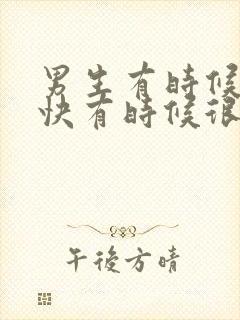 男生有時候
快有時候很
午後方晴